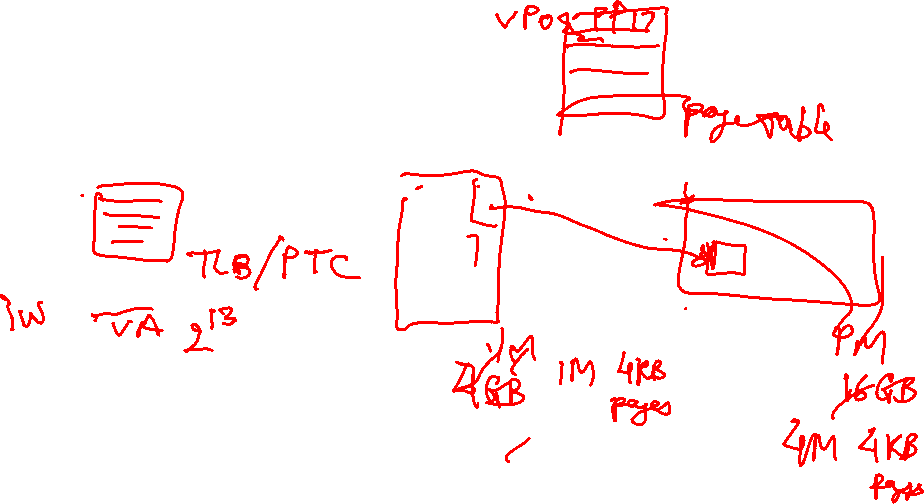 page Table
TLB/PTC
VA 2^13
VM
4GB
1M 4KB
pages
PM
16GB
4M 4KB
pages